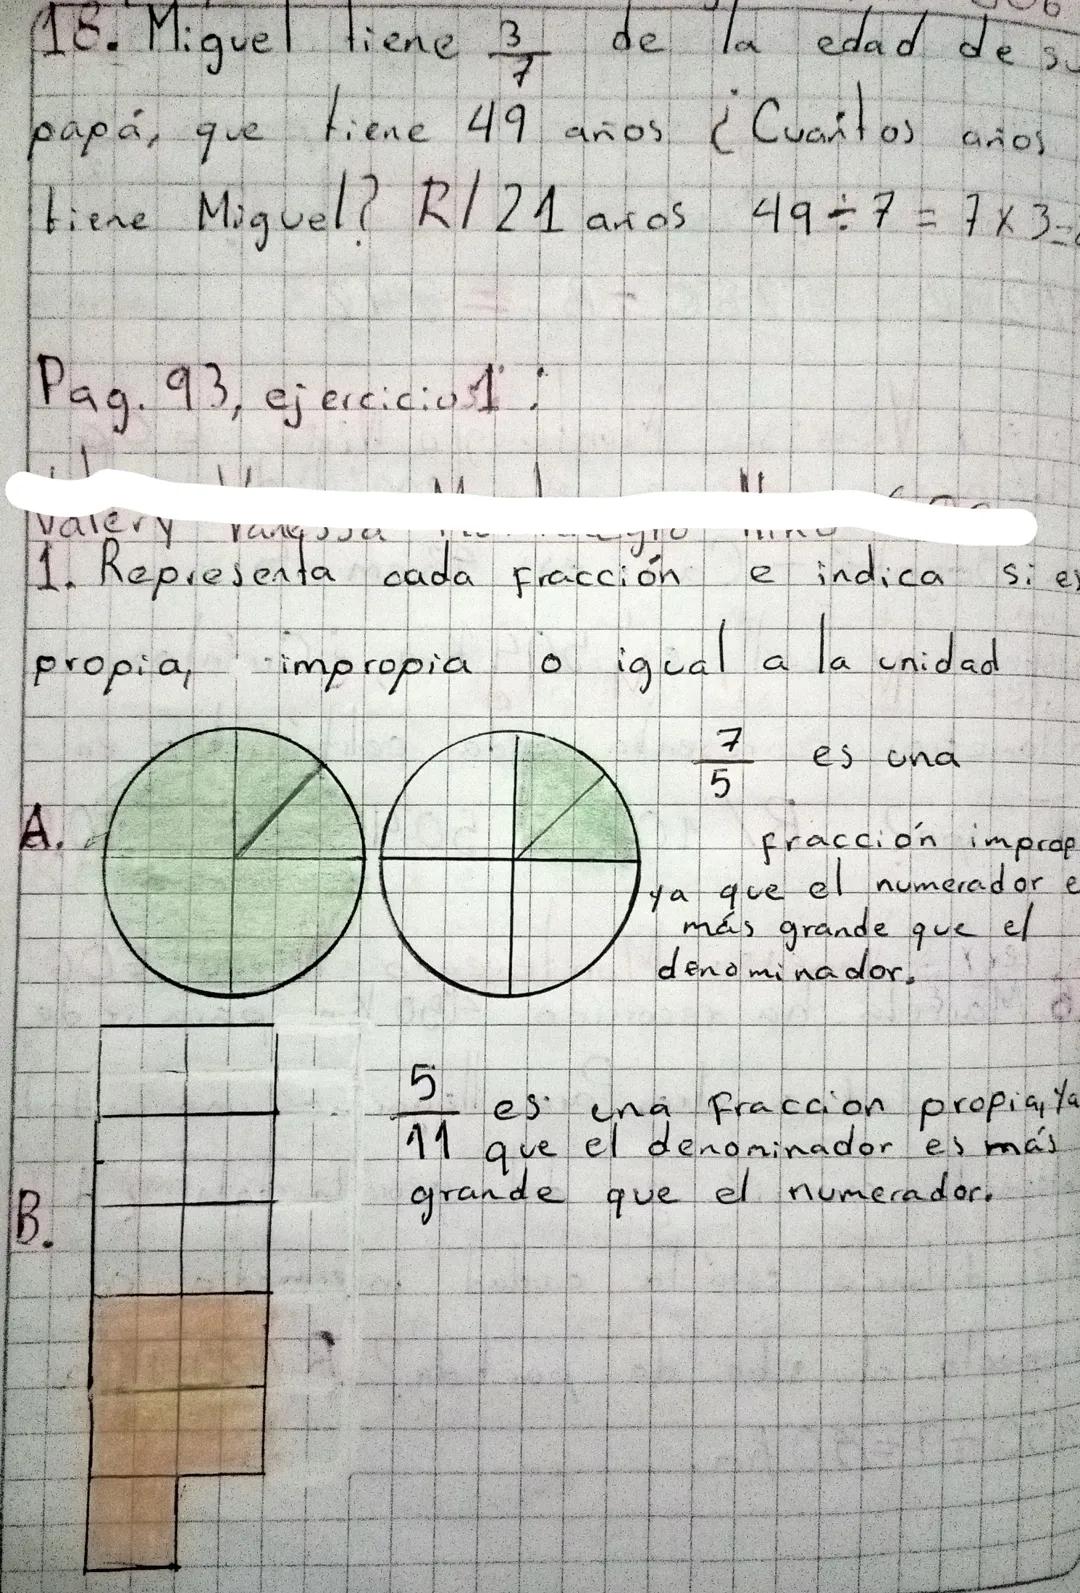 18. Miguel tiene 3/7 de la edad de su
papá, que tiene 49 años ¿Cuantos años
tiene Miguel? R/ 21 años 49÷7 = 7x3=
Pag. 93, ejercicio 1:
1. Representa cada fracción e indica si es
propia, impropia o igual a la unidad
A.
7/5 es una
fracción improp
ya que el numerador e
más grande que el
denominador.
B.
5/11 es una fraccion propia, ya
que el denominador es más
grande que el numerador.